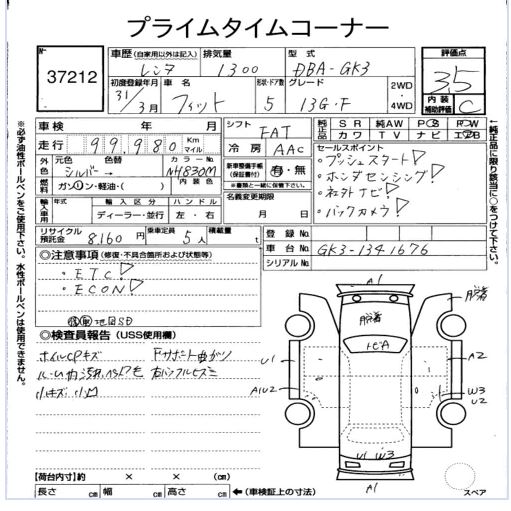 プライムタイムコーナー
No
37212
車歴(自家用以外は記入)
レンタ
排気量
1300
型式
DBA-GK3
評価点
3.5
初度登録年月
31/3月
車名
フィット
形状・ドア数
5
グレード
13G・F
2WD
4WD
内装
補助評価
C
※必ず油性ボールペンをご使用下さい。水性ボールペンは使用できません。
車検 年 月
走行 99,980 Km マイル
シフト FAT
冷房 AAC
純正品 SR 純AW PS PW
カワ TV ナビ エアB
←純正品に限り該当に○をつけて下さい。
外色 元色 シルバー→ 色替 カラーNo. NH830M
内装色
燃料 ガソリン・軽油・( )
新車整備手帳(保証書付) 有・無
※書類と一緒に保管下さい。
セールスポイント
・プッシュスタート!
・ホンダセンシング!
・社外ナビ!
・バックカメラ!
名義変更期限
月 日
輸入車用 年式 輸入区分 ハンドル
ディーラー・並行 左・右
リサイクル預託金 8160円
乗車定員 5人
積載量 t
登録No.
車台No. GK3-1341676
シリアルNo.
◎注意事項(修復・不具合箇所および状態等)
・ETC!
・ECON!
地図SD
◎検査員報告(USS使用欄)
ホイルCPキズ
Fサポート曲がり
ルーム内汚れ
右
小キズ
【荷台内寸】約 × × (cm)
長さ cm 幅 cm 高さ cm ←(車検証上の寸法)
A1
脱着
脱着
トビA
U1
A2
A1U2
W3
U2
U1 W3
A1
スペア